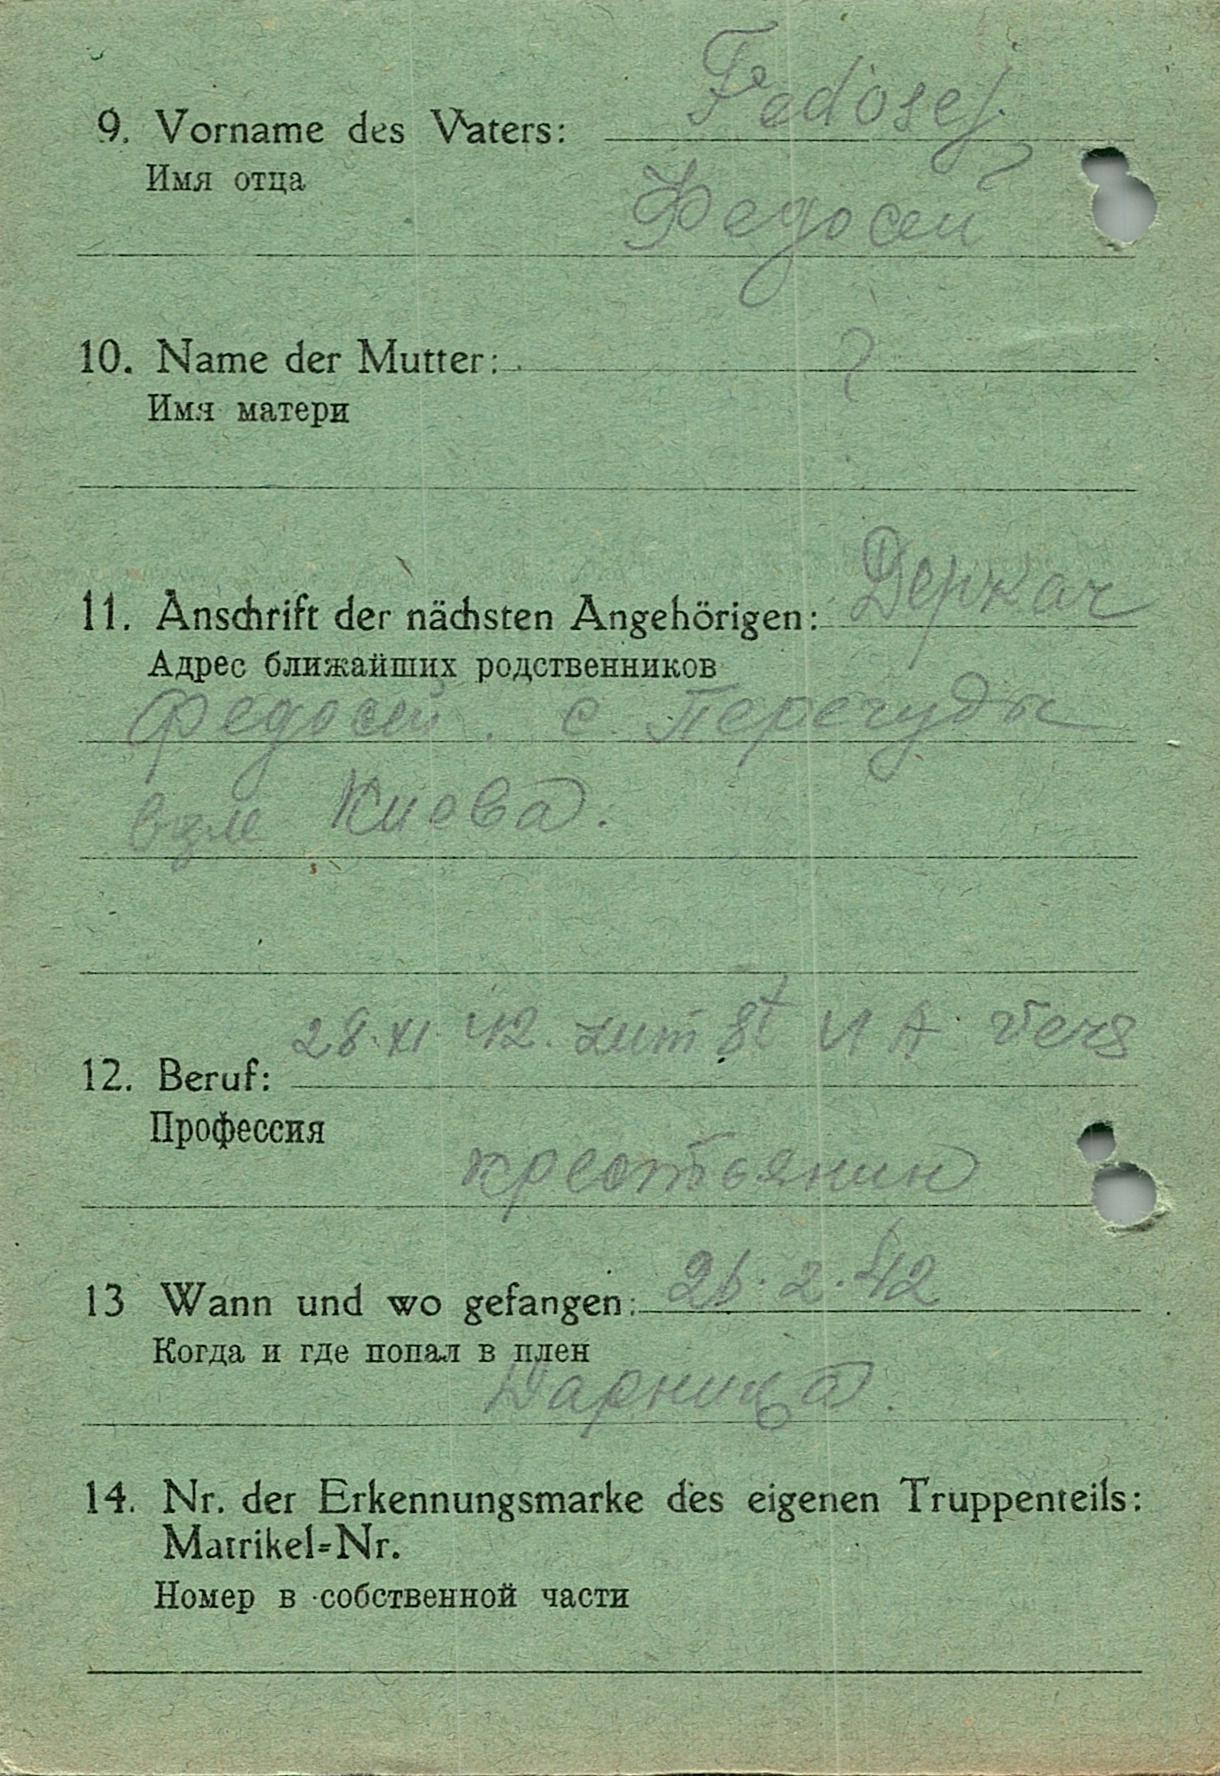 Fedosej.
9. Vorname des Vaters:
Имя отца
Федосей
10. Name der Mutter: ?
Имя матери
11. Anschrift der nächsten Angehörigen: Деркач
Адрес ближайших родственников
Федосей. с. Перегуды
взле Киева.
28. XI. 42. zum St
12. Beruf:
Профессия
крестьянин
13 Wann und wo gefangen: 26.2.42
Когда и где попал в плен
Дарница.
14. Nr. der Erkennungsmarke des eigenen Truppenteils:
Matrikel=Nr.
Номер в собственной части